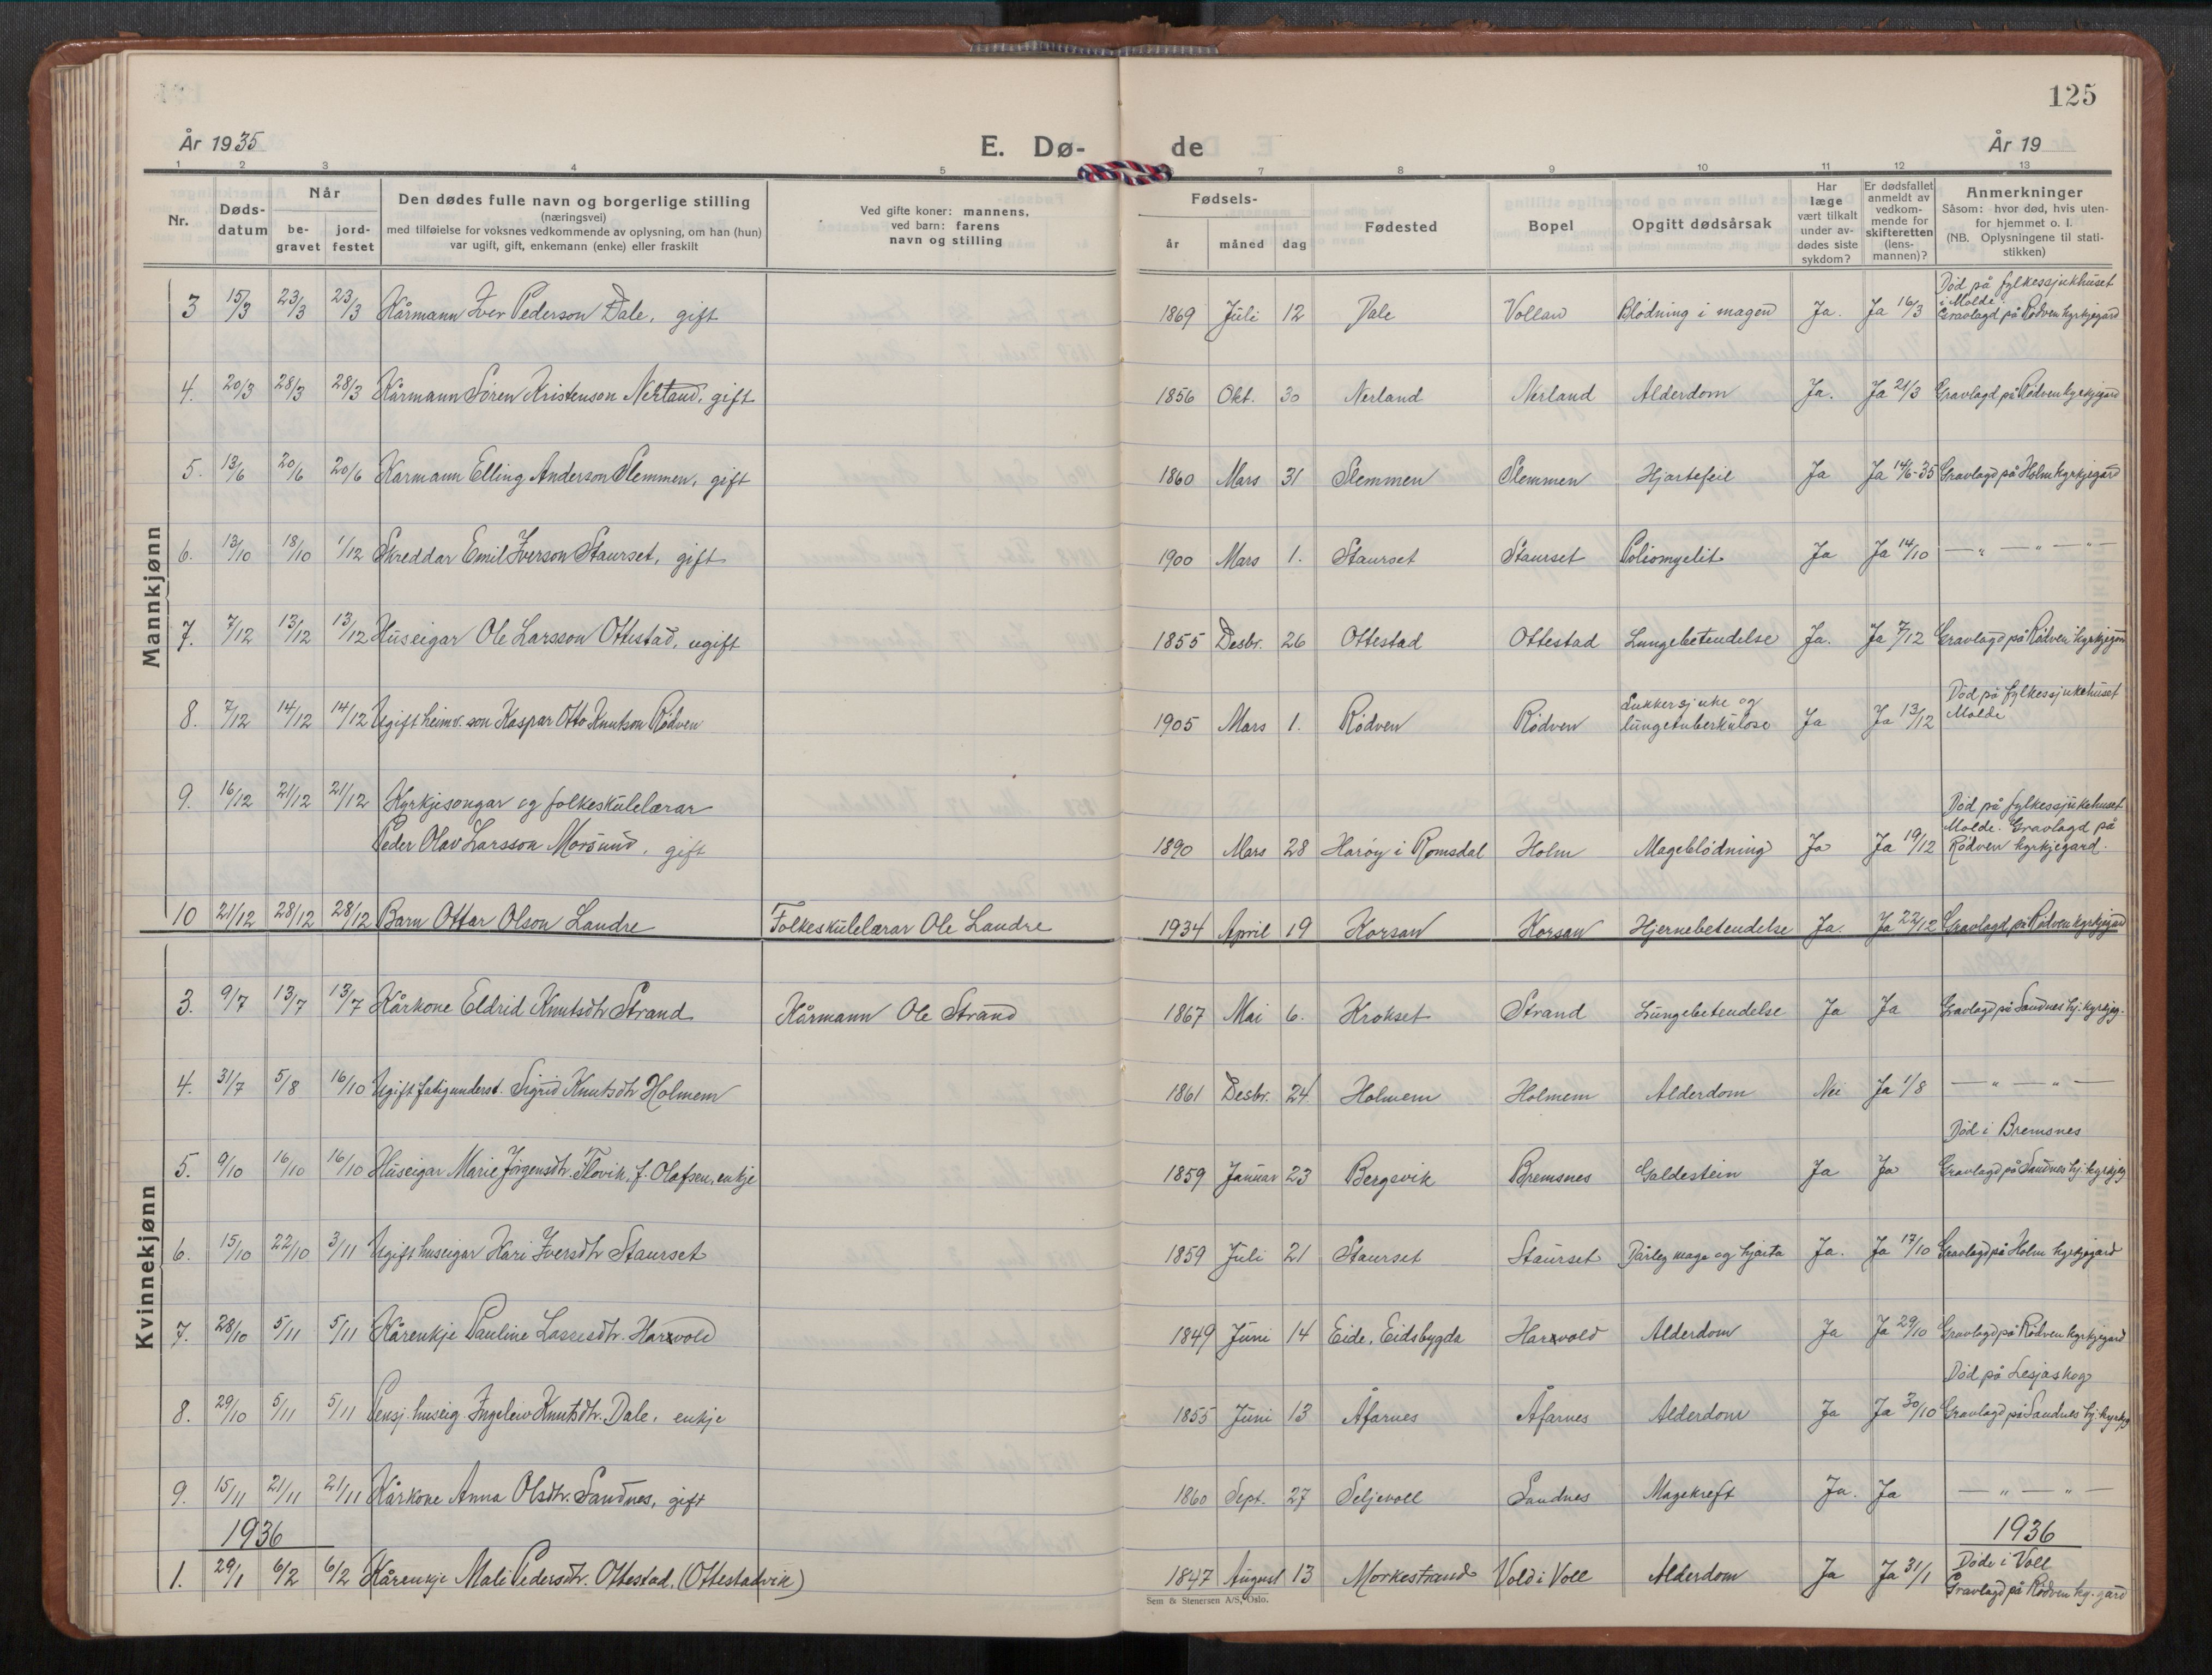 125
År 1935
E. Dø-
de
År 19
1 2 3 4 5 7 8 9 10 11 12 13
Nr.
Døds-
datum
Når
be-
gravet
jord-
festet
Den dødes fulle navn og borgerlige stilling
(næringsvei)
med tilføielse for voksnes vedkommende av oplysning, om han (hun)
var ugift, gift, enkemann (enke) eller fraskilt
Ved gifte koner: mannens,
ved barn: farens
navn og stilling
Fødsels-
år
måned
dag
Fødested
Bopel
Opgitt dødsårsak
Har
læge
vært tilkalt
under av-
dødes siste
sykdom?
Er dødsfallet
anmeldt av
vedkom-
mende for
skifteretten
(lens-
mannen)?
Anmerkninger
Såsom: hvor død, hvis uten-
for hjemmet o. l.
(NB. Oplysningene til stati-
stikken)
Mannkjønn
Død på fylkessjukhuset
i Molde.
3 15/3 23/3 23/3 Kårmann Iver Pederson Dale, gift 1869 Juli 12 Dale Vollan Blödning i magen Ja. Ja 16/3 Gravlagd på Rödven kyrkjegard
4. 20/3 28/3 28/3 Kårmann Sören Kristenson Nerland, gift 1856 Okt. 30 Nerland Nerland Alderdom Ja. Ja 21/3 Gravlagd på Rödven kyrkjegard
5. 13/6 20/6 20/6 Karmann Elling Anderson Slemmen, gift 1860 Mars 31 Slemmen Slemmen Hjartefeil Ja Ja 14/6-35 Gravlagd på Holm kyrkjegard
6. 13/10 18/10 1/12 Skreddar Emil Iverson Staurset, gift 1900 Mars 1. Staurset Staurset Poliomyelit Ja Ja 14/10 — " — " — " —
7. 7/12 13/12 13/12 Huseigar Ole Larsson Ottestad, ugift 1855 Desbr. 26 Ottestad Ottestad Lungebetendelse Ja. Ja 7/12 Gravlagd på Rödven kyrkjegard
Sukkersjuke og Död på fylkessjukehuset
8. 7/12 14/12 14/12 Ugift heimv. son Kaspar Otto Knutson Rödven 1905 Mars 1. Rödven Rödven lungetuberkulose Ja Ja 13/12 Molde
9. 16/12 21/12 21/12 Kyrkjesongar og folkeskulelærar Död på fylkessjukehuset
Molde. Gravlagd på
Peder Olav Larsson Morsund, gift 1890 Mars 28 Haröy i Romsdal Holm Mageblödning Ja Ja 19/12 Rödven kyrkjegard.
10 21/12 28/12 28/12 Barn Ottar Olson Landre Folkeskulelærar Ole Landre 1934 April 19 Korsan Korsan Hjernebetendelse Ja. Ja 22/12 Gravlagd på Rödven kyrkjegard
Kvinnekjønn
3. 9/7 13/7 13/7 Kårkone Eldrid Knutsdtr Strand Kårmann Ole Strand 1867 Mai 6. Krokset Strand Lungebetendelse Ja Ja Gravlagd på Sandnes hj. kyrkjeg.
4. 31/7 5/8 16/10 Ugift fatigunderst. Sigrid Knutsdtr Holmem 1861 Desbr. 24 Holmem Holmem Alderdom Nei Ja 1/8 — " — " —
Död i Bremsnes
5. 9/10 16/10 16/10 Huseigar Marie Jörgensdtr. Flovik, f. Olafsen, enkje 1859 Januar 23 Bergsvik Bremsnes Galdestein Ja Ja Gravlagd på Sandnes hj. kyrkjeg
6. 15/10 22/10 3/11 Ugift huseigar Kari Iversdtr Staurset 1859 Juli 21 Staurset Staurset Dårleg mage og hjarta Ja. Ja 17/10 Gravlagd på Holm kyrkjegard
7. 28/10 5/11 5/11 Kårenkje Pauline Lassesdtr. Harxvold 1849 Juni 14 Eide, Eidsbygda Harxvold Alderdom Ja Ja 29/10 Gravlagd på Rödven kyrkjegard
Död på Lesjaskog
8. 29/10 5/11 5/11 Pensj. huseig. Ingeleiv Knutsdtr. Dale, enkje 1855 Juni 13 Åfarnes Åfarnes Alderdom Ja Ja 30/10 Gravlagd på Sandnes hj. kyrkjg
9. 15/11 21/11 21/11 Kårkone Anna Olsdtr. Sandnes, gift 1860 Sept. 27 Seljevoll Sandnes Magekreft Ja. Ja — " — " —
1936 1936
Döde i Voll
1. 29/1 6/2 6/2 Kårenkje Mali Pedersdtr. Ottestad, (Ottestadvik) 1847 August 13 Morkestrand Vold i Voll Alderdom Ja Ja 31/1 Gravlagd på Rödven ky.gard
Sem & Stenersen A/S, Oslo.